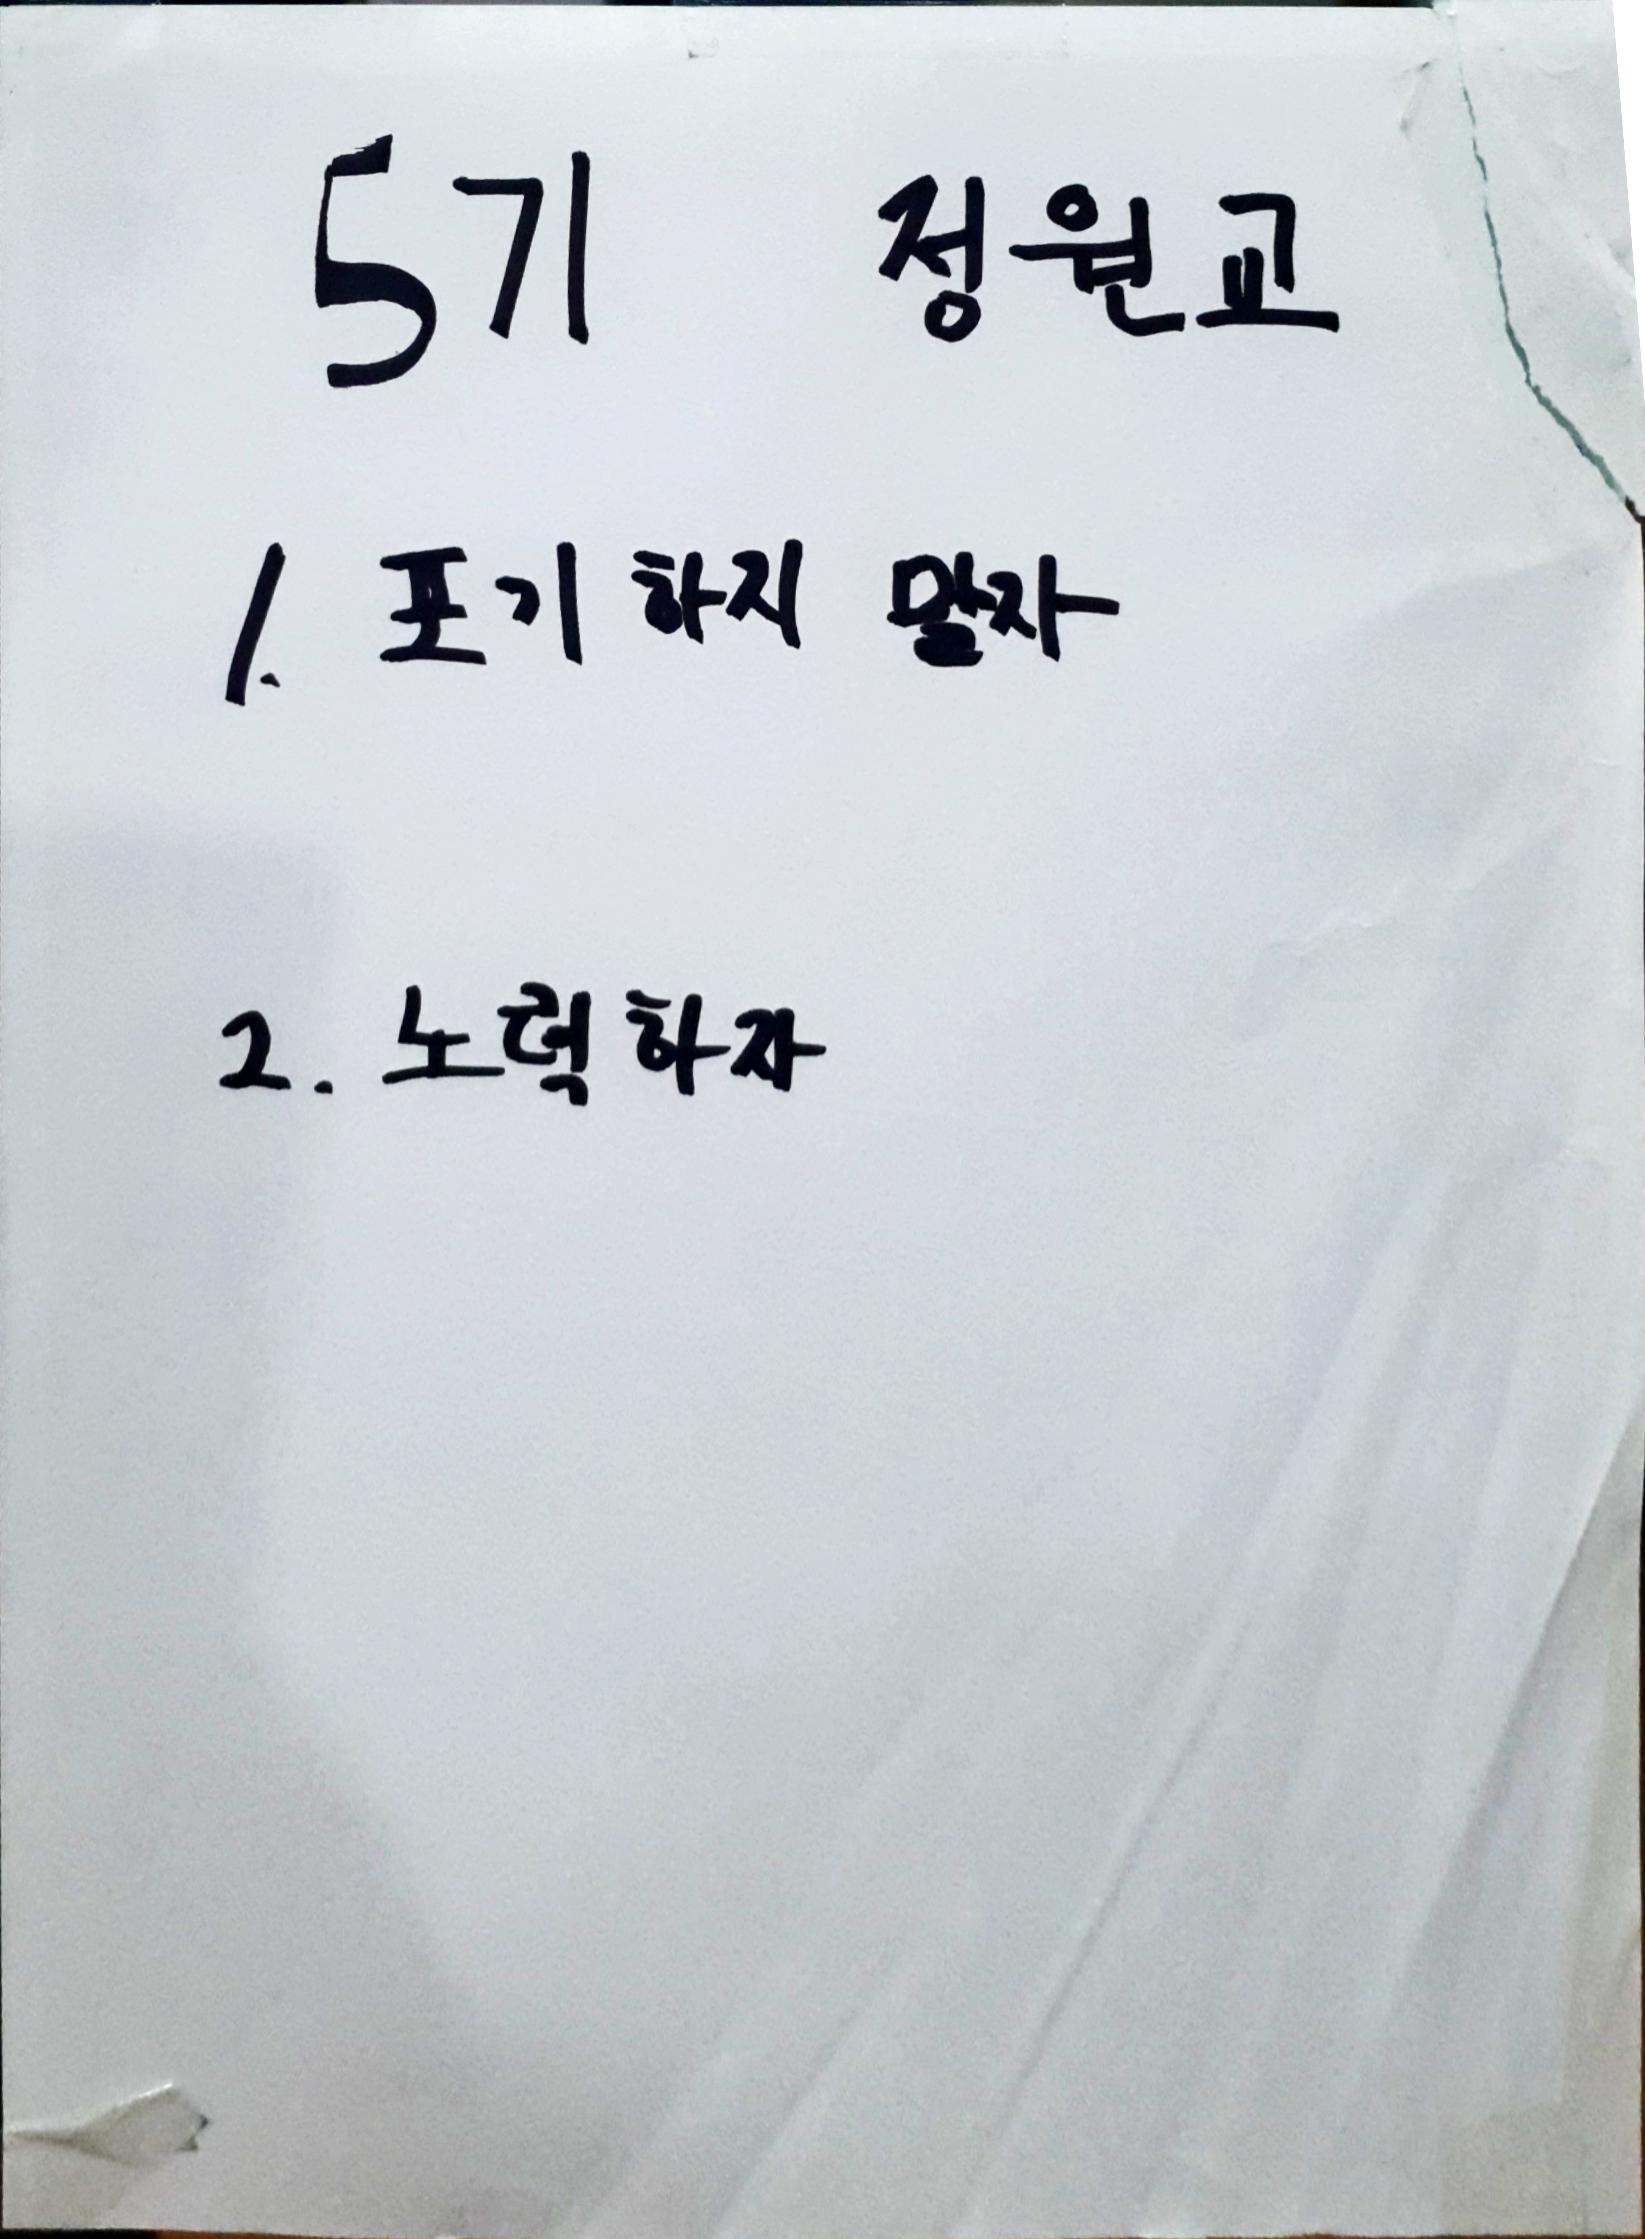 5기 정원교
1. 포기하지 말자
2. 노력하자